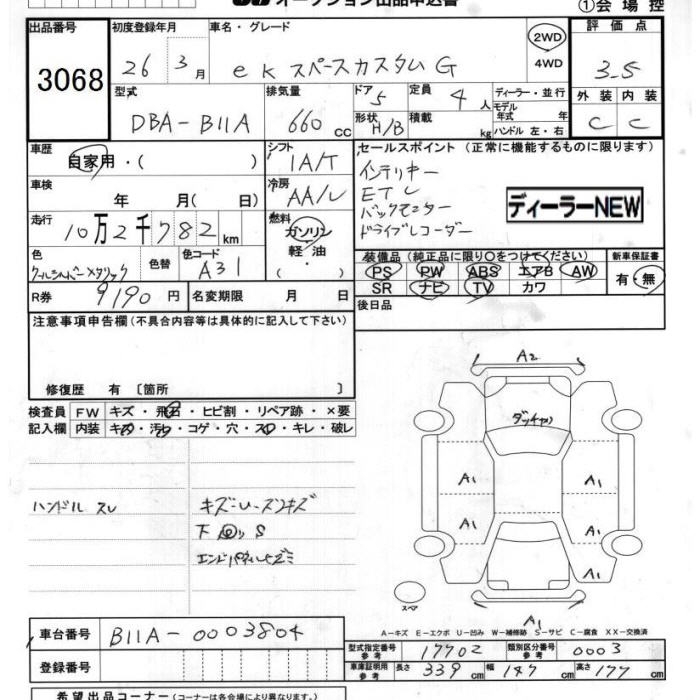 オークション出品申込書
①会場控
出品番号 初度登録年月 車名・グレード 2WD 4WD 評価点
3068 26年 3月 ekスペースカスタムG 3.5
型式 排気量 ドア 5 定員 4人 ディーラー・並行 外装 内装
DBA-B11A 660cc 形状 H/B 積載 kg モデル年式 年 ハンドル 左・右 C C
車歴 自家用・( ) シフト IA/T セールスポイント (正常に機能するものに限ります)
車検 年 月 ( 日) 冷房 AA/C インテリキー
ETC
バックモニター
ドライブレコーダー
ディーラーNEW
走行 10万2千782km 燃料 ガソリン 軽油 ( )
色 クールシルバーメタリック 色替 色コード A31
装備品 (純正品に限り○をつけてください) 新車保証書
PS PW ABS エアB AW 有・無
SR ナビ TV カワ
R券 9190円 名変期限 月 日 後日品
注意事項申告欄(不具合内容等は具体的に記入して下さい)
修復歴 有 〔箇所 〕
検査員 FW キズ・飛石・ヒビ割・リペア跡・×要
記入欄 内装 キズ・汚れ・コゲ・穴・スレ・キレ・破レ
A2
A1 A1
A1 A1
A1
スペア
A1
ハンドル スレ
下回りS
A-キズ E-エクボ U-凹み W-補修跡 S-サビ C-腐食 XX-交換済
車台番号 B11A-0003804
型式指定番号 参考 17702 類別区分番号 参考 0003
登録番号
車庫証明用 参考 長さ 339cm 幅 147cm 高さ 177cm
希望出品コーナー (コーナーは各会場により異なります。)